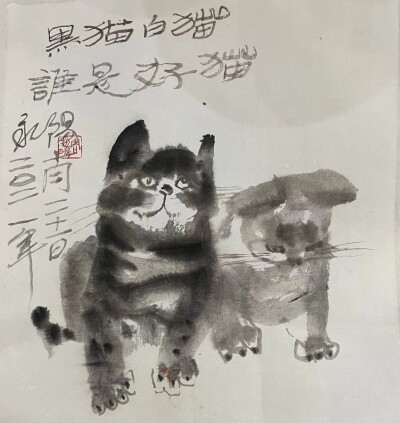 黑猫白猫
誰是好猫
永陽
二〇二一年
月二十日